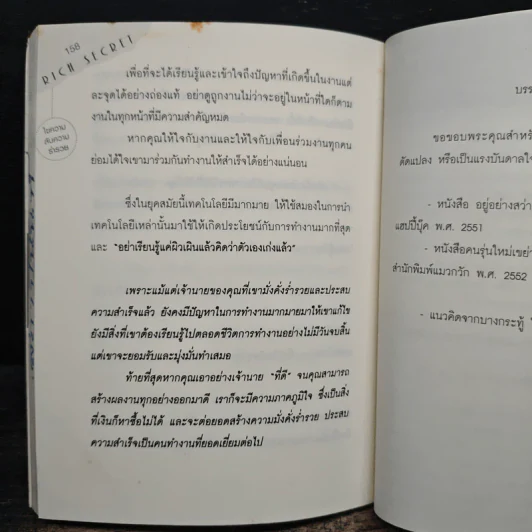 158
RICH SECRET
ไขความ
ลับความ
ร่ำรวย
เพื่อที่จะได้เรียนรู้และเข้าใจถึงปัญหาที่เกิดขึ้นในงานแต่
ละจุดได้อย่างถ่องแท้ อย่าดูถูกงานไม่ว่าจะอยู่ในหน้าที่ใดก็ตาม
งานในทุกหน้าที่มีความสำคัญหมด
หากคุณให้ใจกับงานและให้ใจกับเพื่อนร่วมงานทุกคน
ย่อมได้ใจเขามาร่วมกันทำงานให้สำเร็จได้อย่างแน่นอน
ซึ่งในยุคสมัยนี้เทคโนโลยีมีมากมาย ให้ใช้สมองในการนำ
เทคโนโลยีเหล่านั้นมาใช้ให้เกิดประโยชน์กับการทำงานมากที่สุด
และ "อย่าเรียนรู้แค่ผิวเผินแล้วคิดว่าตัวเองเก่งแล้ว"
เพราะแม้แต่เจ้านายของคุณที่เขามั่งคั่งร่ำรวยและประสบ
ความสำเร็จแล้ว ยังคงมีปัญหาในการทำงานมากมายมาให้เขาแก้ไข
ยังมีสิ่งที่เขาต้องเรียนรู้ไปตลอดชีวิตการทำงานอย่างไม่มีวันจบสิ้น
แต่เขาจะยอมรับและมุ่งมั่นทำเสมอ
ท้ายที่สุดหากคุณเอาอย่างเจ้านาย "ที่ดี" จนคุณสามารถ
สร้างผลงานทุกอย่างออกมาดี เราก็จะมีความภาคภูมิใจ ซึ่งเป็นสิ่ง
ที่เงินก็หาซื้อไม่ได้ และจะต่อยอดสร้างความมั่งคั่งร่ำรวย ประสบ
ความสำเร็จเป็นคนทำงานที่ยอดเยี่ยมต่อไป
บรร
ขอขอบพระคุณสำหรั
ดัดแปลง หรือเป็นแรงบันดาลใจ
- หนังสือ อยู่อย่างสว่า
แฮปปี้บุ๊ค พ.ศ. 2551
- หนังสือคนรุ่นใหม่เขย่า
สำนักพิมพ์แมวกวัก พ.ศ. 2552
- แนวคิดจากบางกระทู้